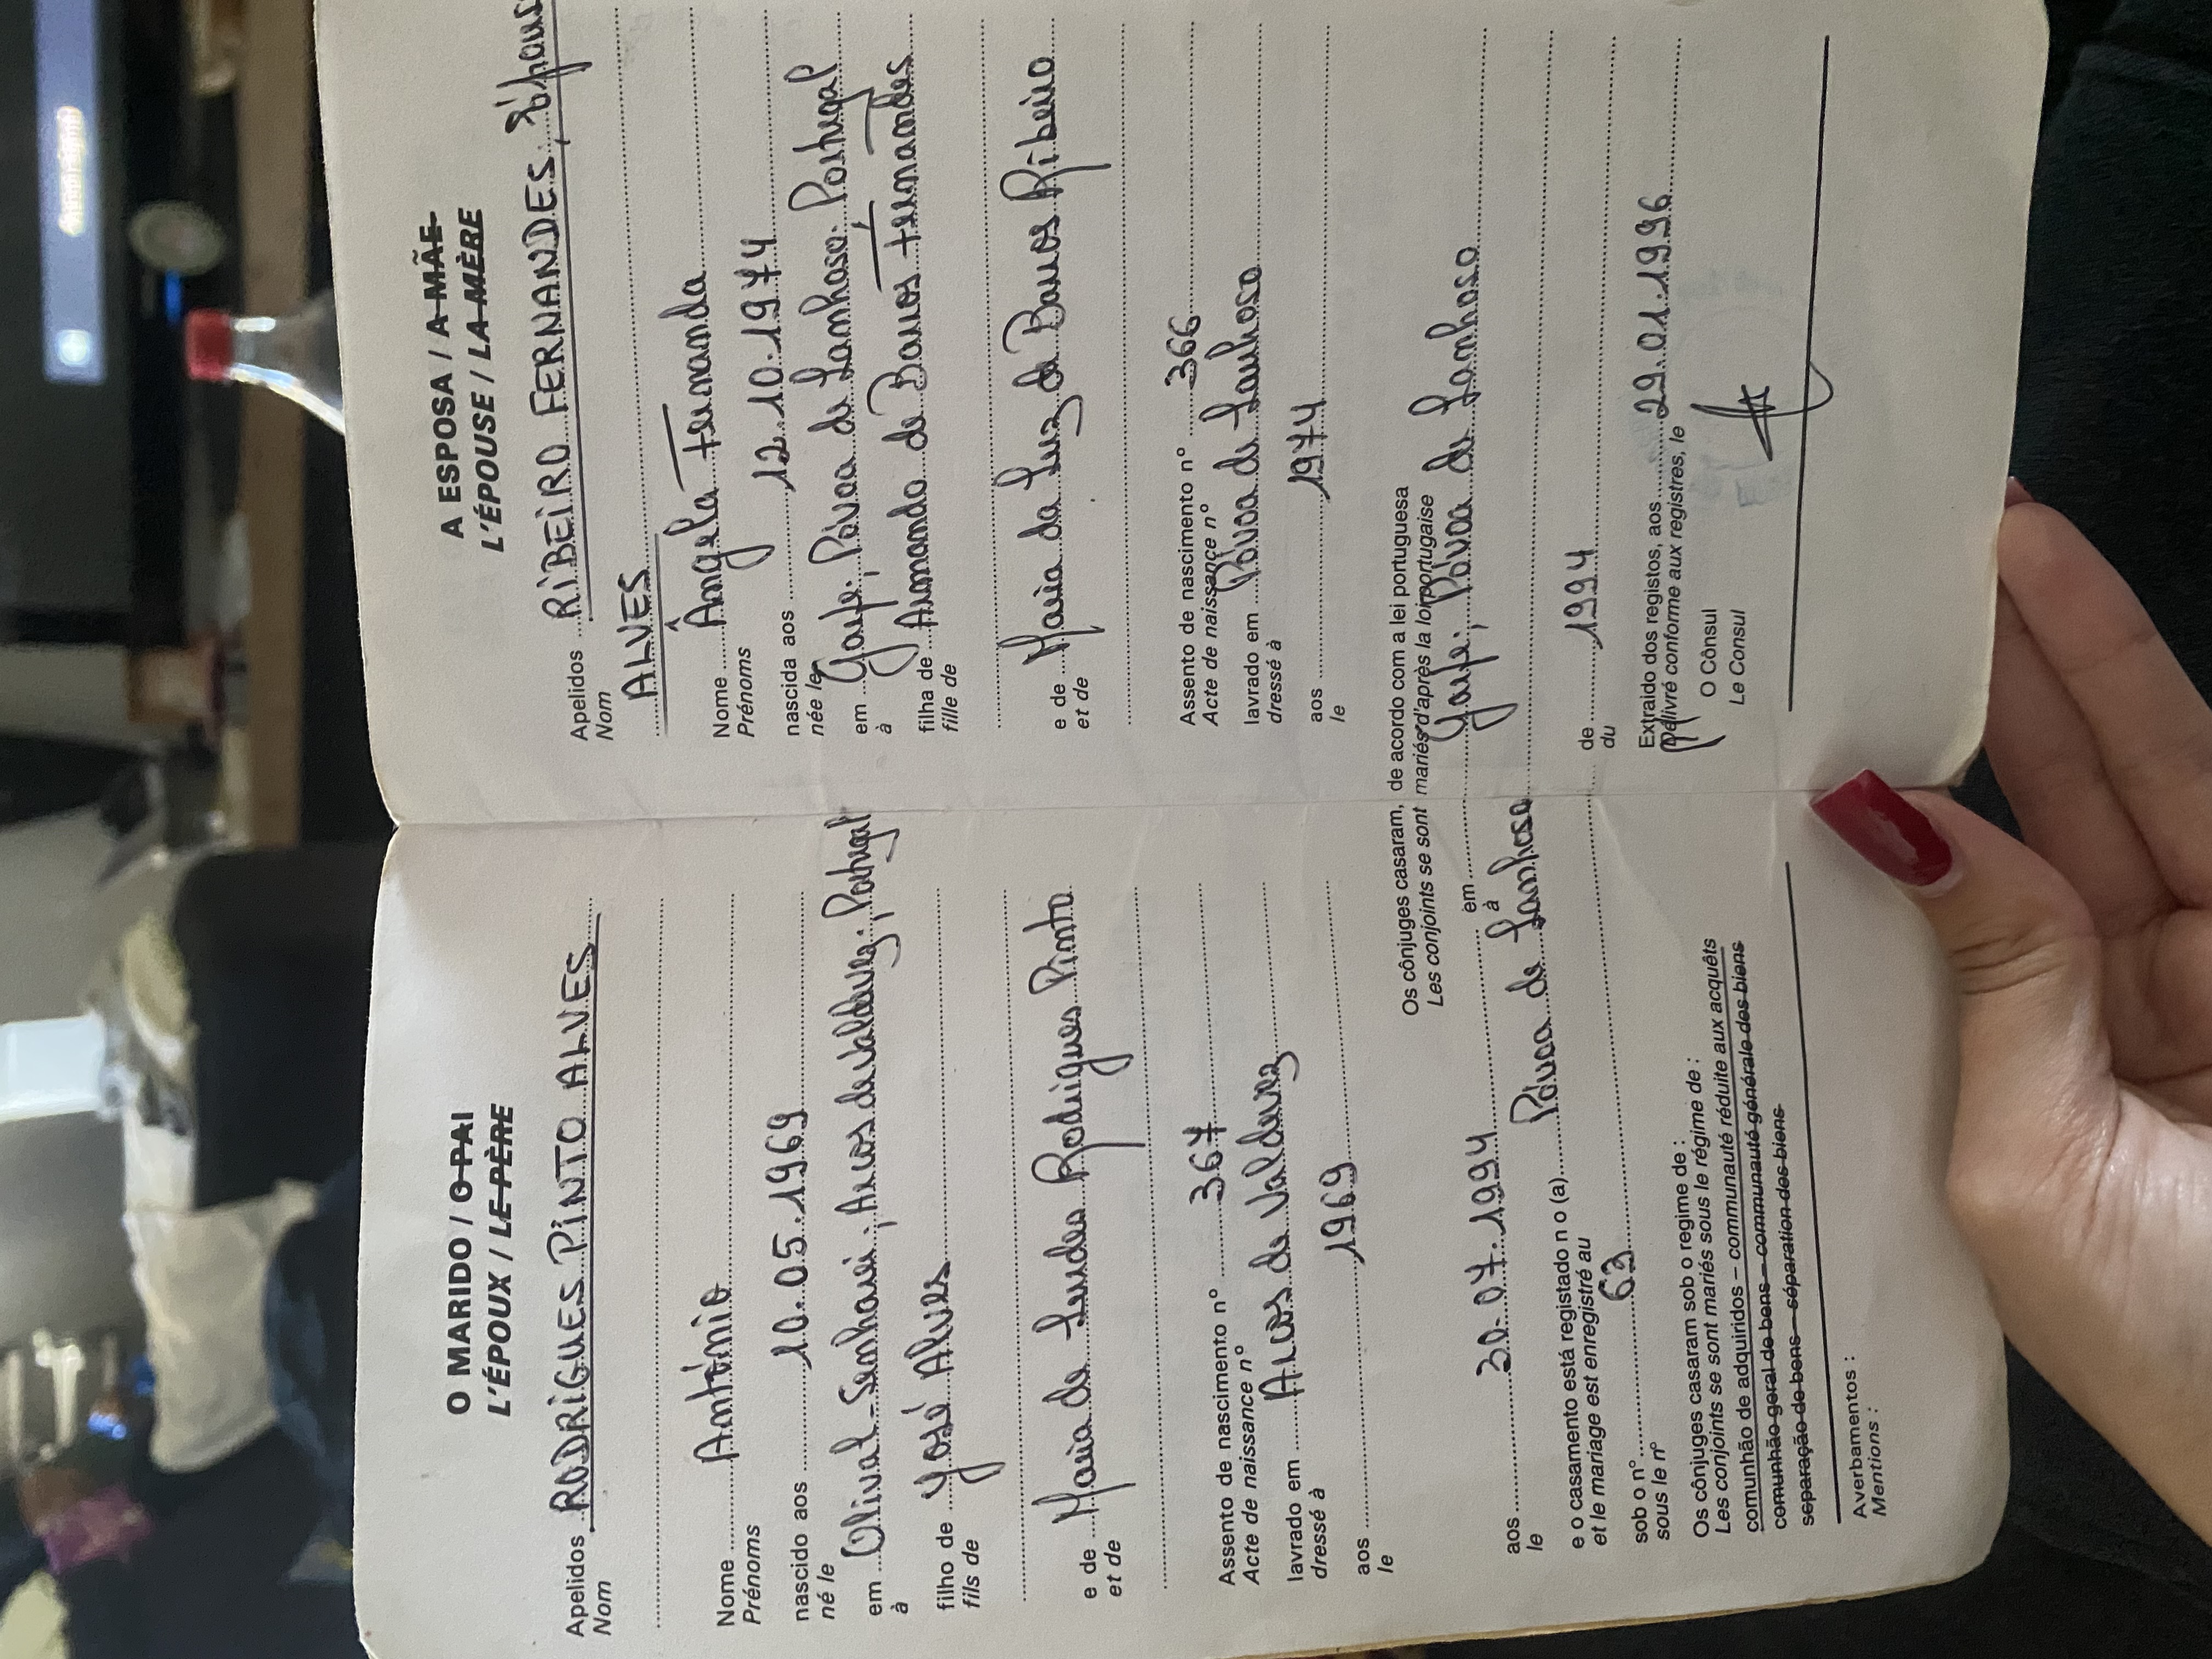 O MARIDO / O PAI
L'ÉPOUX / LE PÈRE
Apelidos RODRIGUES PINTO ALVES
Nom
Nome António
Prénoms
nascido aos 10.05.1969
né le
em Olival-Senharei; Arcos de Valdevez; Portugal
à
filho de José Alves
fils de
e de Maria de Lurdes Rodrigues Pinto
et de
Assento de nascimento nº 367
Acte de naissance nº
lavrado em Arcos de Valdevez
dressé à
aos 1969
le
A ESPOSA / A MÃE
L'ÉPOUSE / LA MÈRE
Apelidos RIBEIRO FERNANDES, épouse
Nom
ALVES
Nome Ângela Fernanda
Prénoms
nascida aos 12.10.1974
née le
em Garfe; Póvoa de Lanhoso. Portugal
à
filha de Armando de Barros Fernandes
fille de
e de Maria da Luz de Barros Ribeiro
et de
Assento de nascimento nº 366
Acte de naissance nº
lavrado em Póvoa de Lanhoso
dressé à
aos 1974
le
Os cônjuges casaram, de acordo com a lei portuguesa
Les conjoints se sont mariés d'après la loi portugaise
aos 30.07.1994 em Garfe; Póvoa de Lanhoso
le à
e o casamento está registado n o (a) Póvoa de Lanhoso
et le mariage est enregistré au
sob o nº 63 de 1994
sous le nº du
Os cônjuges casaram sob o regime de :
Les conjoints se sont mariés sous le régime de :
comunhão de adquiridos – communauté réduite aux acquêts
comunhão geral de bens – communauté générale des biens
separação de bens – séparation des biens
Extraído dos registos, aos 29.01.1996
Délivré conforme aux registres, le
O Cônsul
Le Consul
Averbamentos :
Mentions :